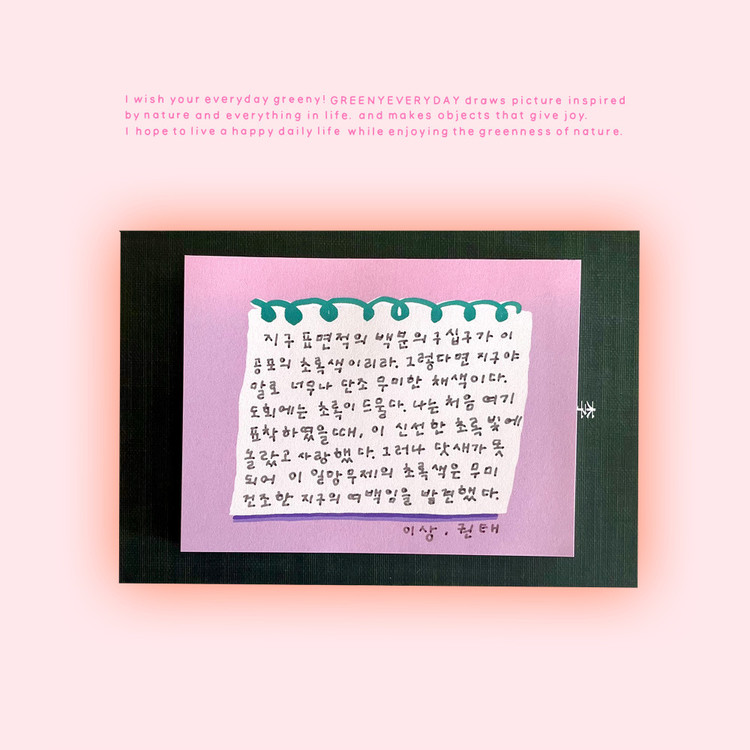 I wish your everyday greeny! GREENYEVERYDAY draws picture inspired
by nature and everything in life. and makes objects that give joy.
I hope to live a happy daily life while enjoying the greenness of nature.
지구 표면적의 백분의 구십구가 이
공포의 초록색이리라. 그렇다면 지구야
말로 너무나 단조 무미한 채색이다.
도회에는 초록이 드물다. 나는 처음 여기
표착하였을 때, 이 신선한 초록 빛에
놀랐고 사랑했다. 그러나 닷새가 못
되어 이 일망무제의 초록색은 무미
건조한 지구의 여백임을 발견했다.
이상, 권태